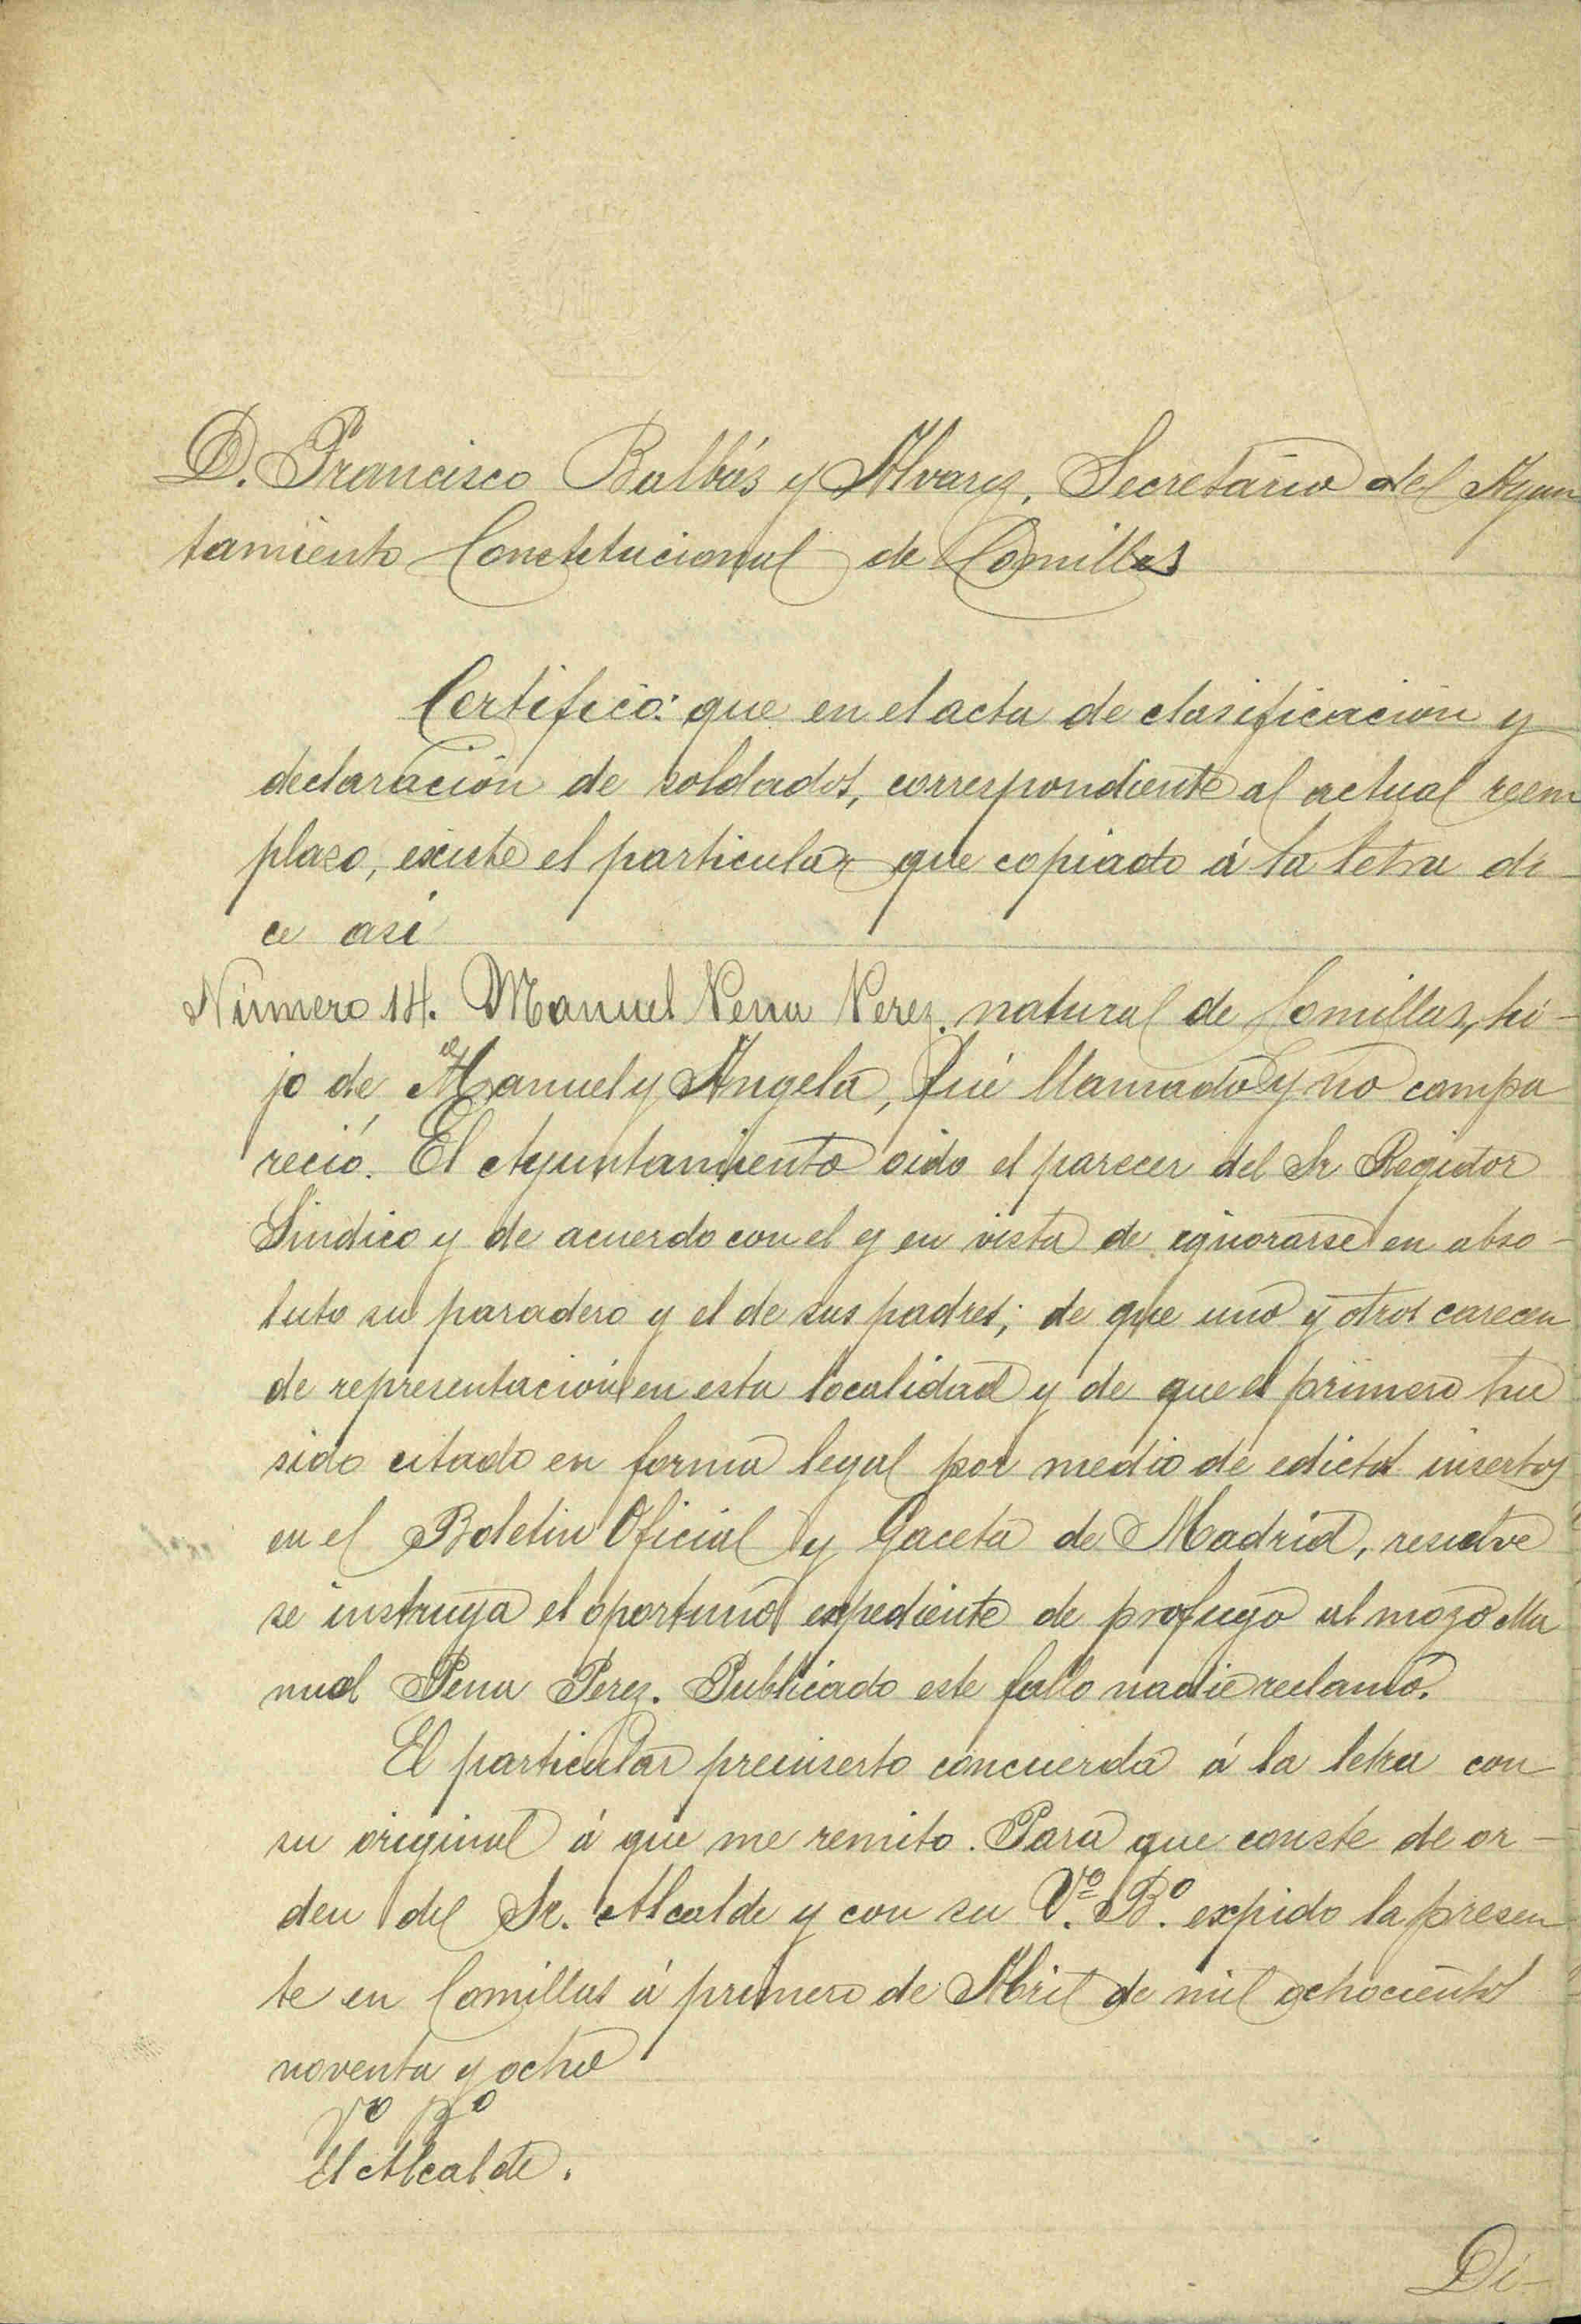 D. Francisco Balbás y Alvarez, Secretario del Ayun
tamiento Constitucional de Comillas
Certifico: que en el acta de clasificación y
declaración de soldados, correspondiente al actual reem
plazo, existe el particular que copiado á la letra di-
ce asi
Número 14. Manuel Pena Perez, natural de Comillas, hi-
jo de Manuel y Angela, fué llamado y no compa
reció. El Ayuntamiento oido el parecer del Sr Regidor
Sindico y de acuerdo con el y en vista de ignorarse en abso-
luto su paradero y el de sus padres; de que uno y otros carecen
de representación en esta localidad y de que el primero ha
sido citado en forma legal por medio de edictos insertos
en el Boletin Oficial y Gaceta de Madrid, resuelve
se instruya el oportuno expediente de profugo al mozo Ma
nuel Pena Perez. Publicado este fallo nadie reclamó.
El particular preinserto concuerda á la letra con
su original á que me remito. Para que conste de or-
den del Sr. Alcalde y con su Vº. Bº. expido la presen
te en Comillas á primero de Abril de mil ochocientos
noventa y ocho
Vº Bº
El Alcalde.
Di-